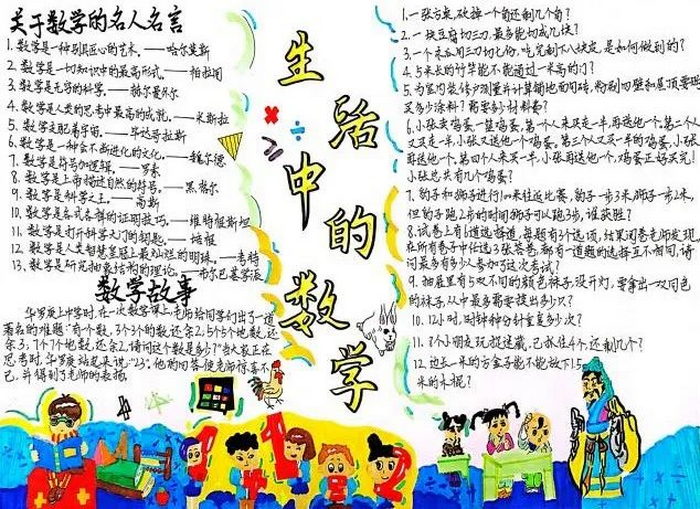 关于数学的名人名言
1. 数学是一种别具匠心的艺术。——哈尔莫斯
2. 数学是一切知识中的最高形式。——柏拉图
3. 数学是无穷的科学。——赫尔曼外尔
4. 数学是人类的思考中最高的成就。——米斯拉
5. 数字支配着宇宙。——毕达哥拉斯
6. 数学是一种会不断进化的文化。——魏尔德
7. 数学是符号加逻辑。——罗素
8. 数学是上帝描述自然的符号。——黑格尔
9. 数学是科学之王。——高斯
10. 数学是各式各样的证明技巧。——维特根斯坦
11. 数学是打开科学大门的钥匙。——培根
12. 数学是人类智慧皇冠上最灿烂的明珠。——考特
13. 数学是研究抽象结构的理论。——布尔巴基学派
数学故事
华罗庚上中学时,在一次数学课上,老师给同学们出了一道
著名的难题:“有个数,3个3个的数,还余2,5个5个地数,还
余3,7个7个地数,还余2,请问这个数是多少?”当大家正在
思考时,华罗庚站起来说:“23”。他的回答使老师惊喜不
已,并得到了老师的表扬。
生活中的数学
1. 一张方桌,砍掉一个角还剩几个角?
2. 一块豆腐切三刀,最多能切成几块?
3. 一个西瓜用三刀切七份,吃完剩下八块皮,是如何做到的?
4. 5米长的竹竿能不能通过一米高的门?
6. 小张卖鸡蛋,一篮鸡蛋,第一个人来买走一半,再送他一个,第二个人
又买走一半,小张又送他一个鸡蛋,第三个人又买一半的鸡蛋,小张
再送他一个,第四个人来买一半,小张再送他一个,鸡蛋正好买完!
小张总共有几个鸡蛋?
7. 豹子和狮子进行100米往返比赛,豹子一步3米,狮子一步2米,
但豹子跑2步的时间狮子可以跑3步,谁获胜?
8. 试卷上有6道选择题,每题有3个选项,结果阅卷老师发现,
在所有卷子中任选3张答卷,都有一道题的选择互不相同,请
问最多有多少人参加了这次考试?
9. 抽屉里有5双不同的颜色袜子,没开灯,要拿出一双同色
的袜子,从中最多需要摸出多少只?
10. 12小时,时钟秒分针重复多少次?
11. 8个小朋友玩捉迷藏,已抓住4个,还剩几个?
12. 边长一米的方盒子能不能放下1.5
米的木棍?